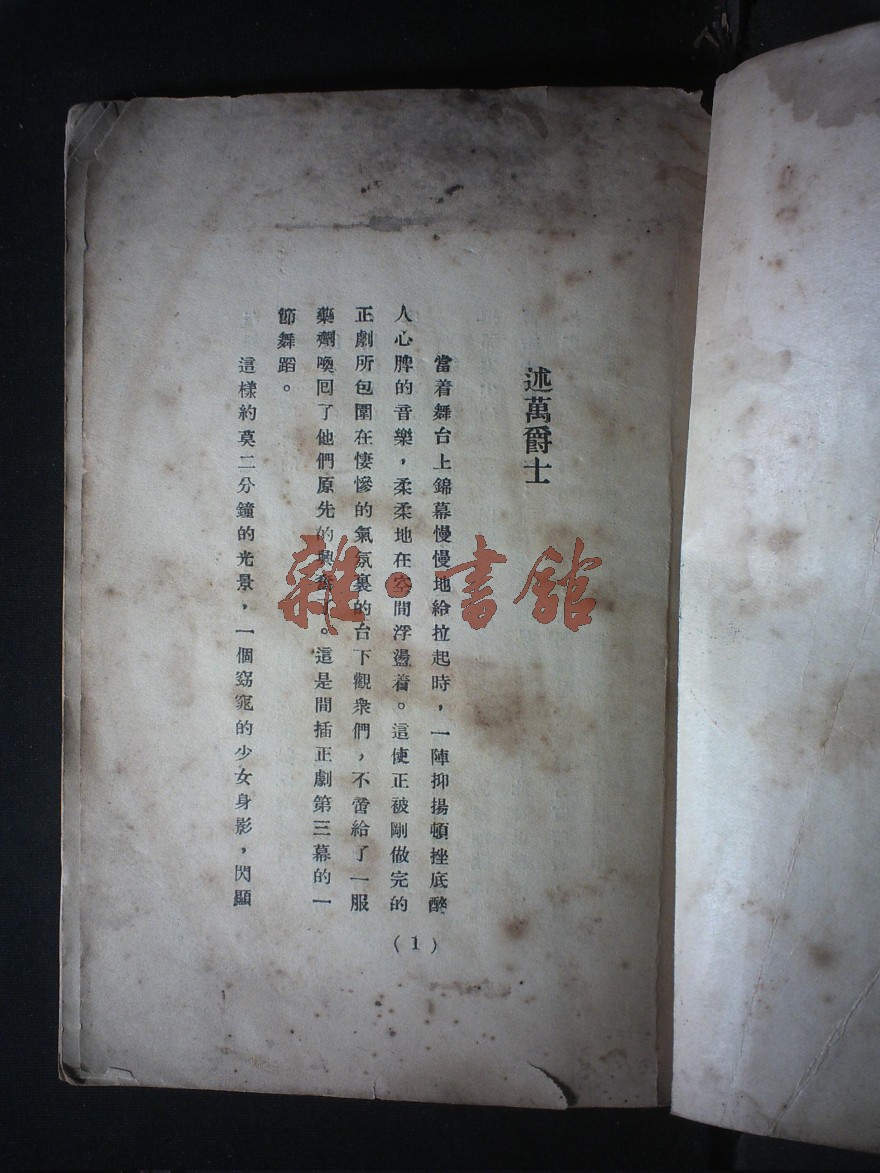 述萬爵士
當着舞台上錦幕慢慢地給拉起時，一陣抑揚頓挫底醉
人心脾的音樂，柔柔地在空間浮盪着。這使正被剛做完的
正劇所包圍在悽慘的氣氛裏的台下觀衆們，不啻給了一服
藥劑喚回了他們原先的興奮了。這是間插正劇第三幕的一
節舞蹈。
這樣約莫二分鐘的光景，一個窈窕的少女身影，閃顯
(1)
雜·書館